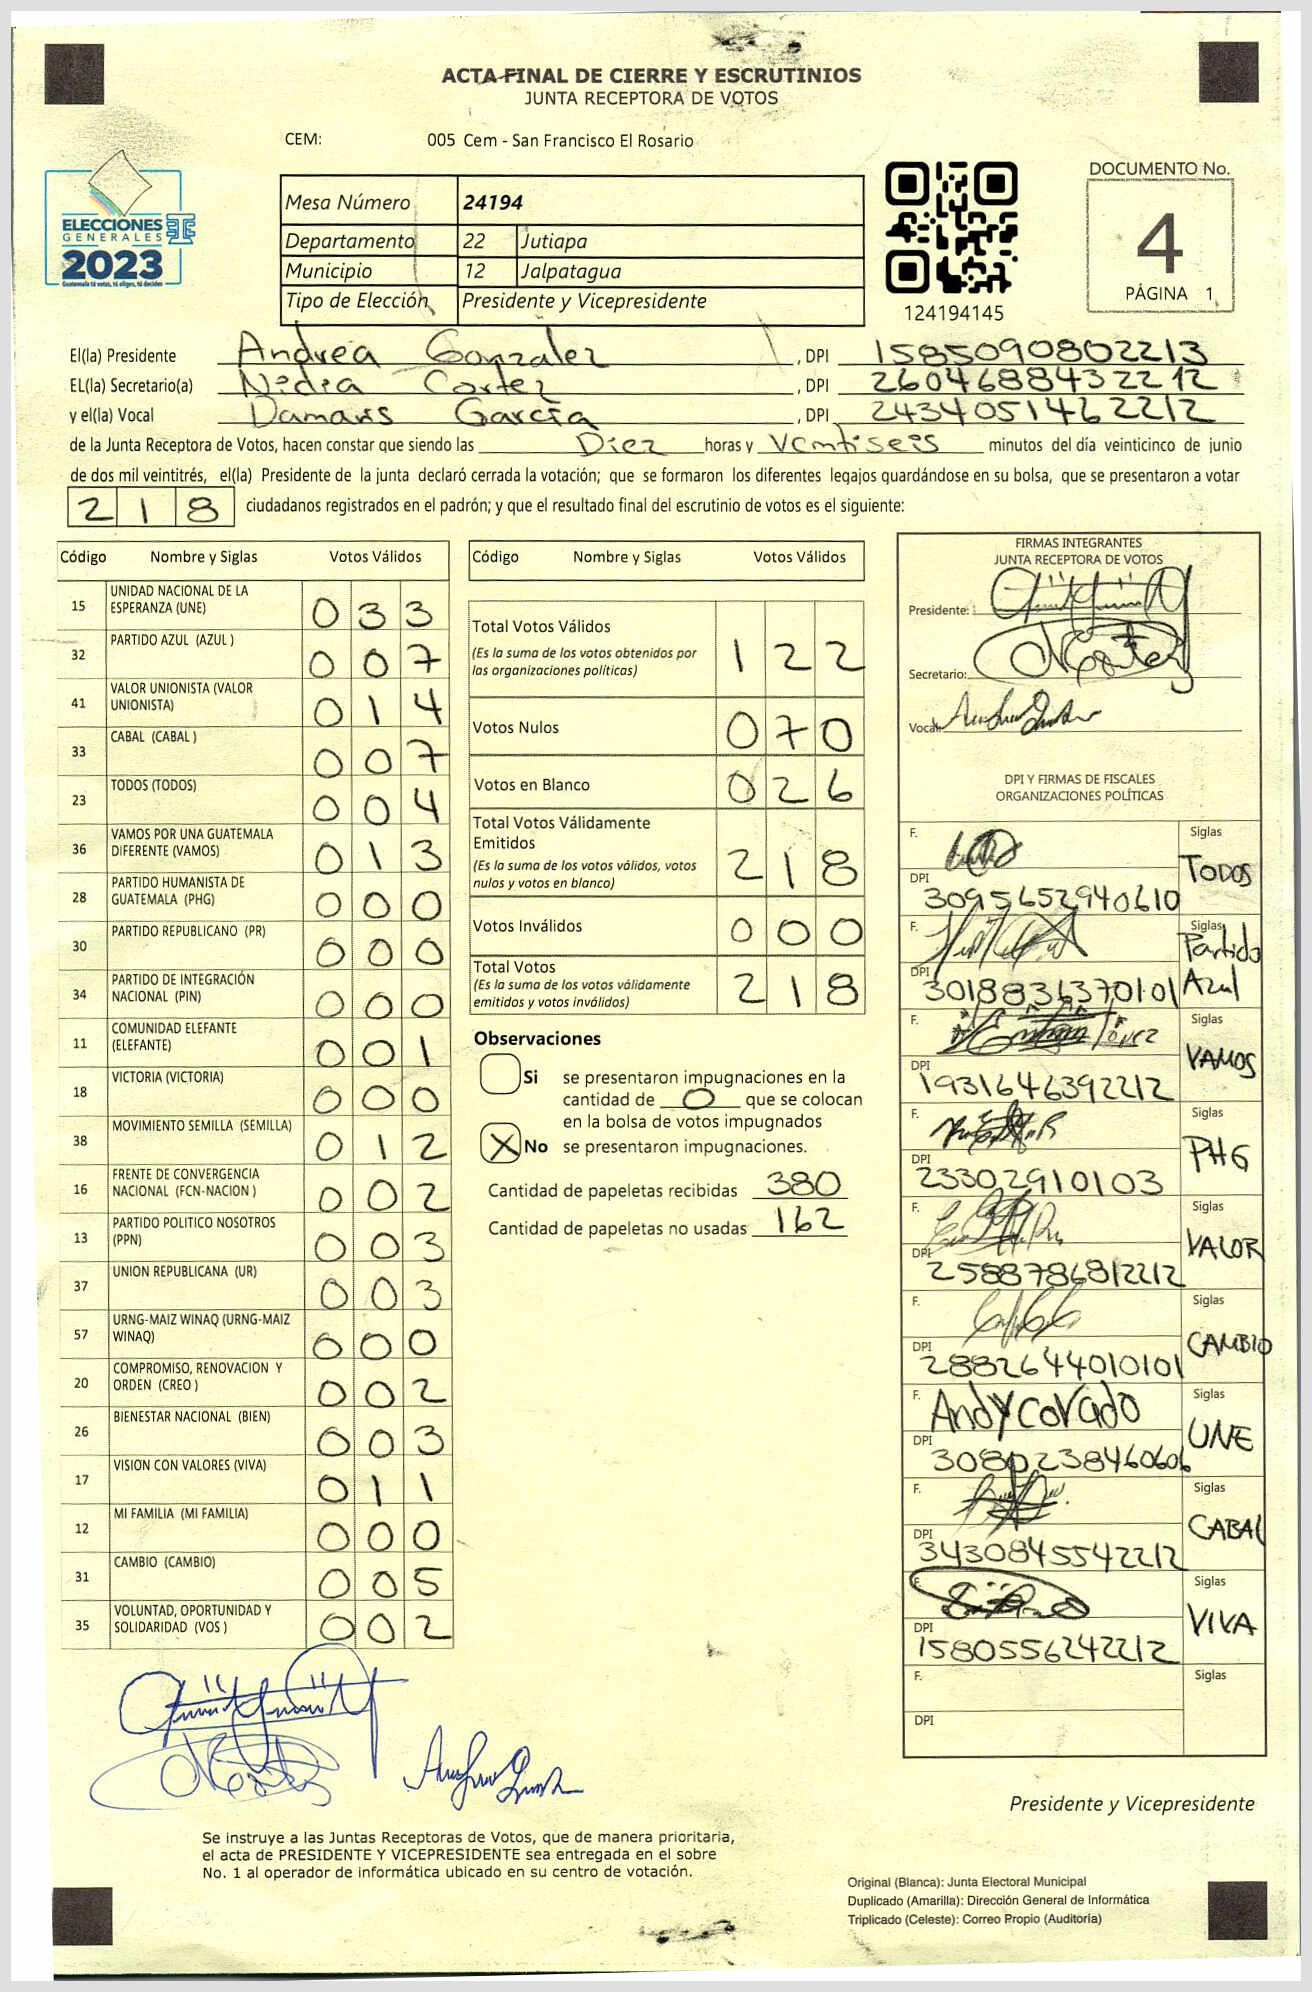 ACTA FINAL DE CIERRE Y ESCRUTINIOS
JUNTA RECEPTORA DE VOTOS
CEM: 005 Cem - San Francisco El Rosario
DOCUMENTO No.
4
PÁGINA 1
ELECCIONES
GENERALES
2023
Guatemala tú votas, tú eliges, tú decides
Mesa Número 24194
Departamento 22 Jutiapa
Municipio 12 Jalpatagua
Tipo de Elección Presidente y Vicepresidente
124194145
El(la) Presidente Andrea Gonzalez, DPI 1585090802213
EL(la) Secretario(a) Nidia Cortez, DPI 2604688432212
y el(la) Vocal Damaris García, DPI 2434051462212
de la Junta Receptora de Votos, hacen constar que siendo las Diez horas y Ventiseis minutos del día veinticinco de junio
de dos mil veintitrés, el(la) Presidente de la junta declaró cerrada la votación; que se formaron los diferentes legajos guardándose en su bolsa, que se presentaron a votar
218 ciudadanos registrados en el padrón; y que el resultado final del escrutinio de votos es el siguiente:
Código Nombre y Siglas Votos Válidos
15 UNIDAD NACIONAL DE LA ESPERANZA (UNE) 033
32 PARTIDO AZUL (AZUL ) 007
41 VALOR UNIONISTA (VALOR UNIONISTA) 014
33 CABAL (CABAL ) 007
23 TODOS (TODOS) 004
36 VAMOS POR UNA GUATEMALA DIFERENTE (VAMOS) 013
28 PARTIDO HUMANISTA DE GUATEMALA (PHG) 000
30 PARTIDO REPUBLICANO (PR) 000
34 PARTIDO DE INTEGRACIÓN NACIONAL (PIN) 000
11 COMUNIDAD ELEFANTE (ELEFANTE) 001
18 VICTORIA (VICTORIA) 000
38 MOVIMIENTO SEMILLA (SEMILLA) 012
16 FRENTE DE CONVERGENCIA NACIONAL (FCN-NACION ) 002
13 PARTIDO POLITICO NOSOTROS (PPN) 003
37 UNION REPUBLICANA (UR) 003
57 URNG-MAIZ WINAQ (URNG-MAIZ WINAQ) 000
20 COMPROMISO, RENOVACION Y ORDEN (CREO ) 002
26 BIENESTAR NACIONAL (BIEN) 003
17 VISION CON VALORES (VIVA) 011
12 MI FAMILIA (MI FAMILIA) 000
31 CAMBIO (CAMBIO) 005
35 VOLUNTAD, OPORTUNIDAD Y SOLIDARIDAD (VOS ) 002
Código Nombre y Siglas Votos Válidos
Total Votos Válidos 122
(Es la suma de los votos obtenidos por
las organizaciones políticas)
Votos Nulos 070
Votos en Blanco 026
Total Votos Válidamente
Emitidos 218
(Es la suma de los votos válidos, votos
nulos y votos en blanco)
Votos Inválidos 000
Total Votos 218
(Es la suma de los votos válidamente
emitidos y votos inválidos)
Observaciones
Si se presentaron impugnaciones en la
cantidad de 0 que se colocan
en la bolsa de votos impugnados
X No se presentaron impugnaciones.
Cantidad de papeletas recibidas 380
Cantidad de papeletas no usadas 162
FIRMAS INTEGRANTES
JUNTA RECEPTORA DE VOTOS
Presidente:
Secretario:
Vocal:
DPI Y FIRMAS DE FISCALES
ORGANIZACIONES POLÍTICAS
F. Siglas
TODOS
DPI 3095652940610
F. Siglas
Partido
Azul
DPI 3018836370101
F. Siglas
VAMOS
DPI 1931646392212
F. Siglas
PHG
DPI 23302910103
F. Siglas
VALOR
DPI 2588786812212
F. Siglas
CAMBIO
DPI 2882644010101
F. Andy corado Siglas
UNE
DPI 3080238460606
F. Siglas
CABAL
DPI 3430845542212
F. Siglas
VIVA
DPI 1580556242212
F. Siglas
DPI
Presidente y Vicepresidente
Se instruye a las Juntas Receptoras de Votos, que de manera prioritaria,
el acta de PRESIDENTE Y VICEPRESIDENTE sea entregada en el sobre
No. 1 al operador de informática ubicado en su centro de votación.
Original (Blanca): Junta Electoral Municipal
Duplicado (Amarilla): Dirección General de Informática
Triplicado (Celeste): Correo Propio (Auditoría)